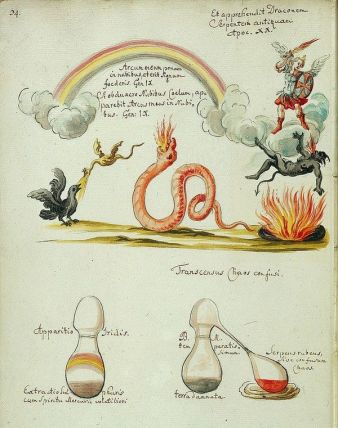 24.
Et apprehendit Draconem
Serpentem antiquum
Apoc. XX.
Arcum meum ponam
in nubibus, et erit signum
foederis. Gen: IX
obduxero Nubibus Caelum, ap
parebit Arcus meus in Nubi
bus. Gen: IX.
Transcensus Chaos confusi.
Apparitio Iridis.
Extractio Sulphuris
cum Spiritu Mercurii volatiliori
terra damnata
Serpens rubeus,
sive confusum
Chaos